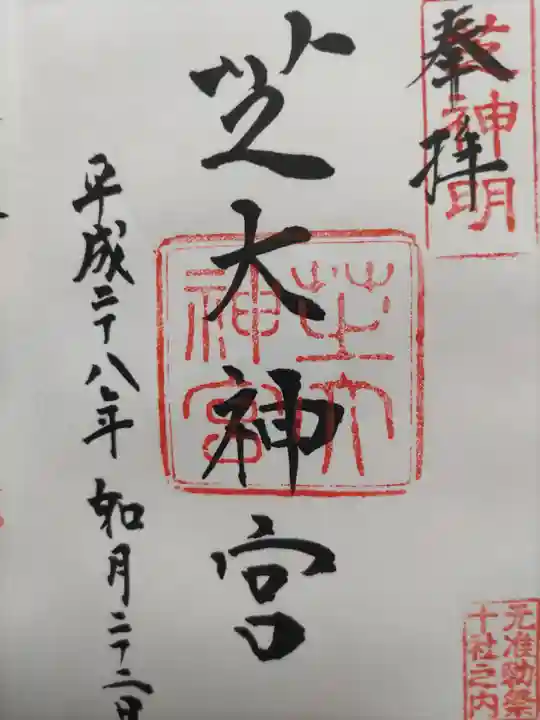 奉拝
芝神明
芝大神宮
芝大
神宮
平成二十八年如月二十二日
元准勅祭
十社之内